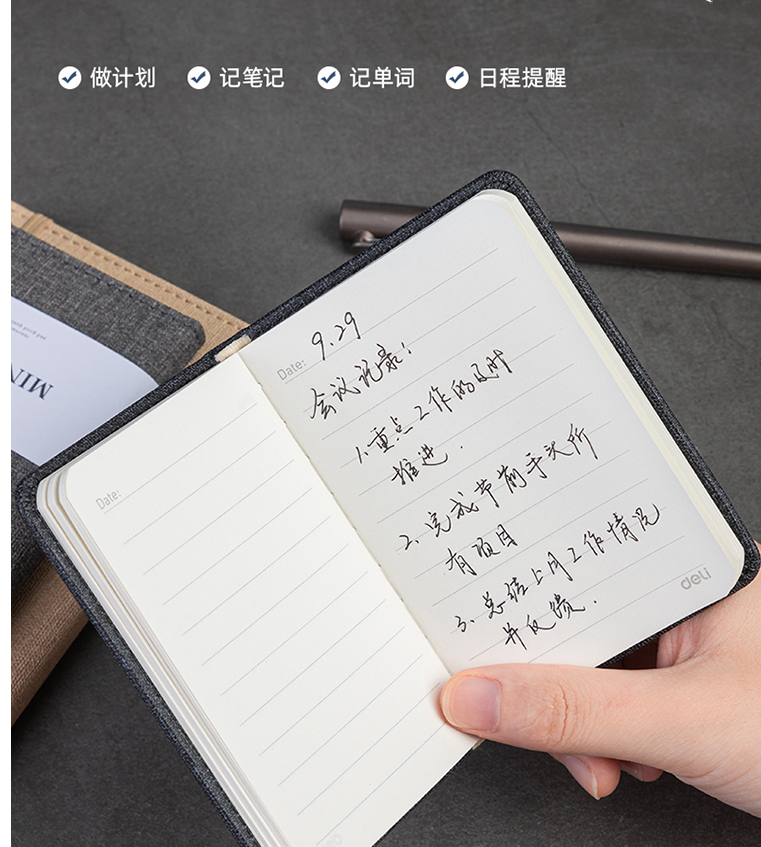 做计划 记笔记 记单词 日程提醒
Date: 9.29
会议记录:
1.重点工作的及时
推进.
2.完成节前手头所
有项目
3.总结上周工作情况
并反馈.
deli
Date:
MIN